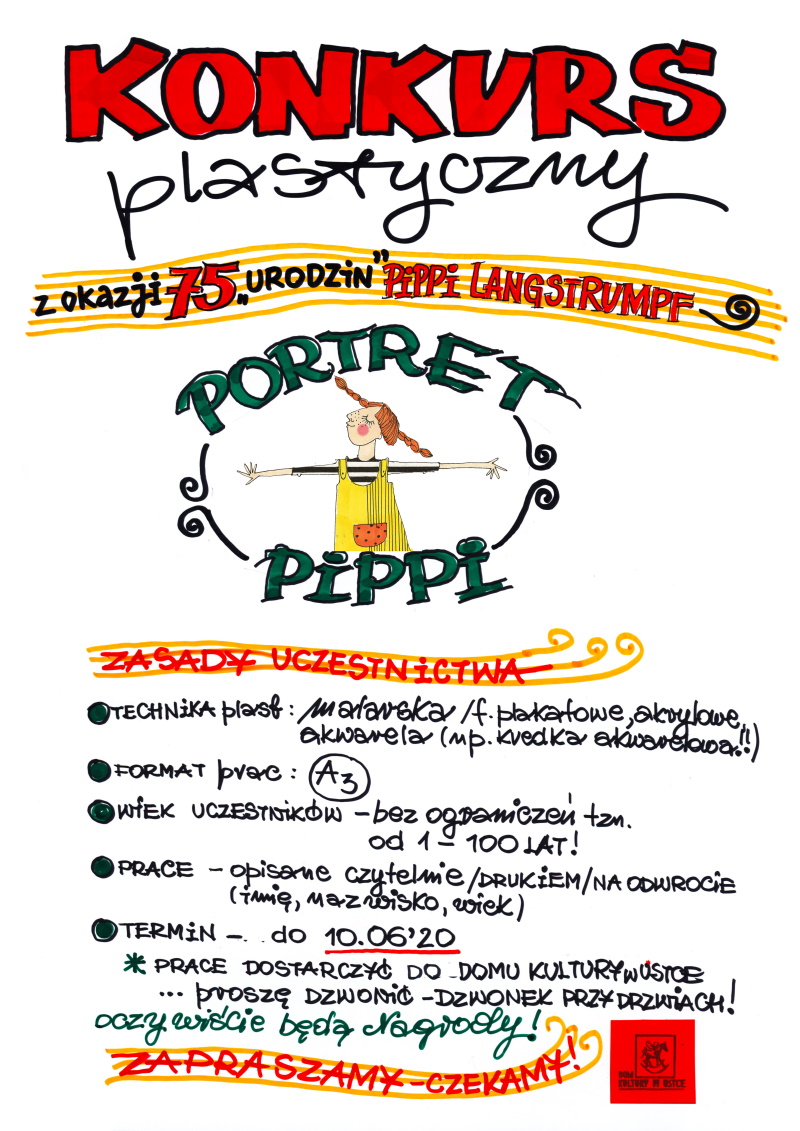 KONKURS
plastyczny
z okazji 75 „URODZIN” PIPPI LANGSTRUMPF
PORTRET
PIPPI
ZASADY UCZESTNICTWA
TECHNIKA plast: malarska /f. plakatowe, akrylowe,
akwarela (np. kredka akwarelowa!!)
FORMAT prac: A3
WIEK UCZESTNIKÓW - bez ograniczeń tzn.
od 1 - 100 LAT!
PRACE - opisane czytelnie /DRUKIEM/ NA ODWROCIE
(imię, nazwisko, wiek)
TERMIN - .. do 10.06'20
* PRACE DOSTARCZYĆ DO DOMU KULTURY W USTCE
... proszę DZWONIĆ - DZWONEK PRZY DRZWIACH!
oczywiście będą Nagrody!
ZAPRASZAMY - CZEKAMY!
DOM
KULTURY W USTCE